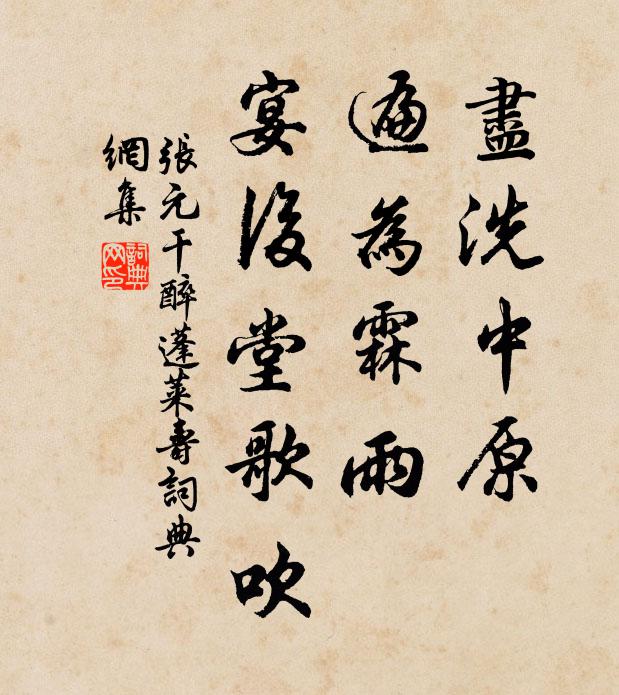 盡洗中原
遍為霖雨
宴後堂歌吹
張元干醉蓬萊壽詞典
網集
詞典
网印